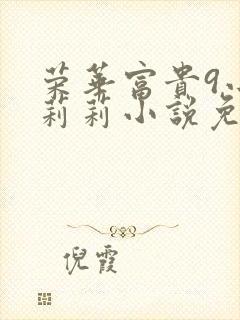 荣华富貴9
莉莉小説免
倪霞